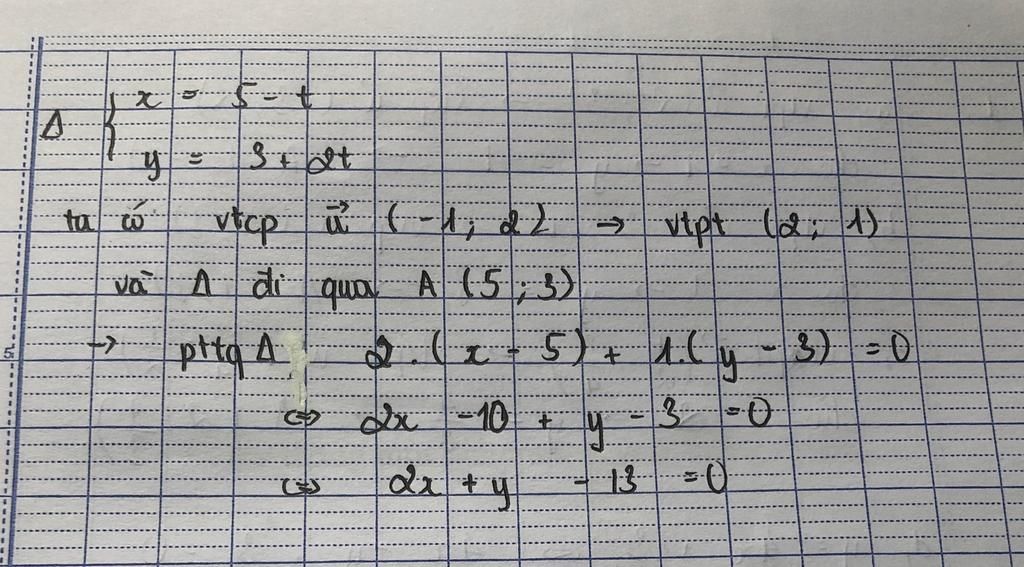 Δ { x = 5 - t
y = 3 + 2t
ta có vtcp u⃗ (-1; 2) → vtpt (2; 1)
và Δ đi qua A (5; 3)
→ pttq Δ 2.(x - 5) + 1.(y - 3) = 0
⇔ 2x - 10 + y - 3 = 0
⇔ 2x + y - 13 = 0